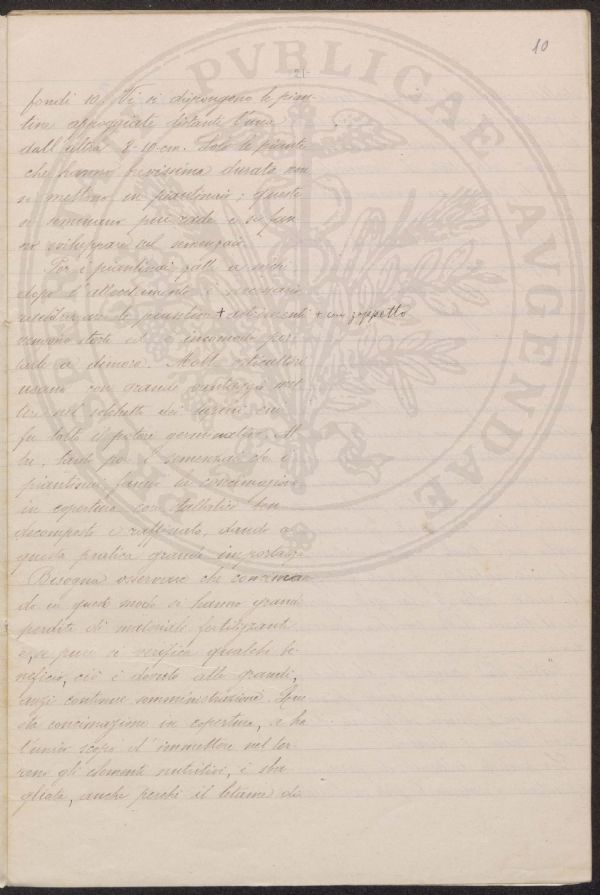 10
21
PVBLICAE AVGENDAE
fondi 10. Vi si dispongono le pian-
tine appoggiate distanti l'una
dall'altra 8-10 cm. Solo le piante
che hanno brevissima durata non
si mettono in piantonaio; queste
si seminano più rade e si fan-
no sviluppare nel semenzaio.
Per i piantinai fatti a
dopo l'attecchimento è necessario
le piantine + altrimenti + con zappetto
vengono storte ed è incomodo por-
tarle a dimora. Molti orticultori
usano con grande vantaggio met-
tere nel solchetto dei lupini cui
fu tolto il potere germinativo. Al-
tri, tanto per i semenzai che i
piantinai fanno la concimazione
in copertura con stallatico ben
decomposto e raffinato, dando a
questa pratica grande importanza
Bisogna osservare che conciman-
do in quel modo si hanno grandi
perdite di materiale fertilizzante
e, se pure si verifica qualche be-
neficio, ciò è dovuto alle grandi,
anzi continue somministrazioni. Que-
sta concimazione in copertura, se ha
l'unico scopo d'immettere nel ter-
reno gli elementi nutritivi, è sba-
gliata, anche perchè il letame di-